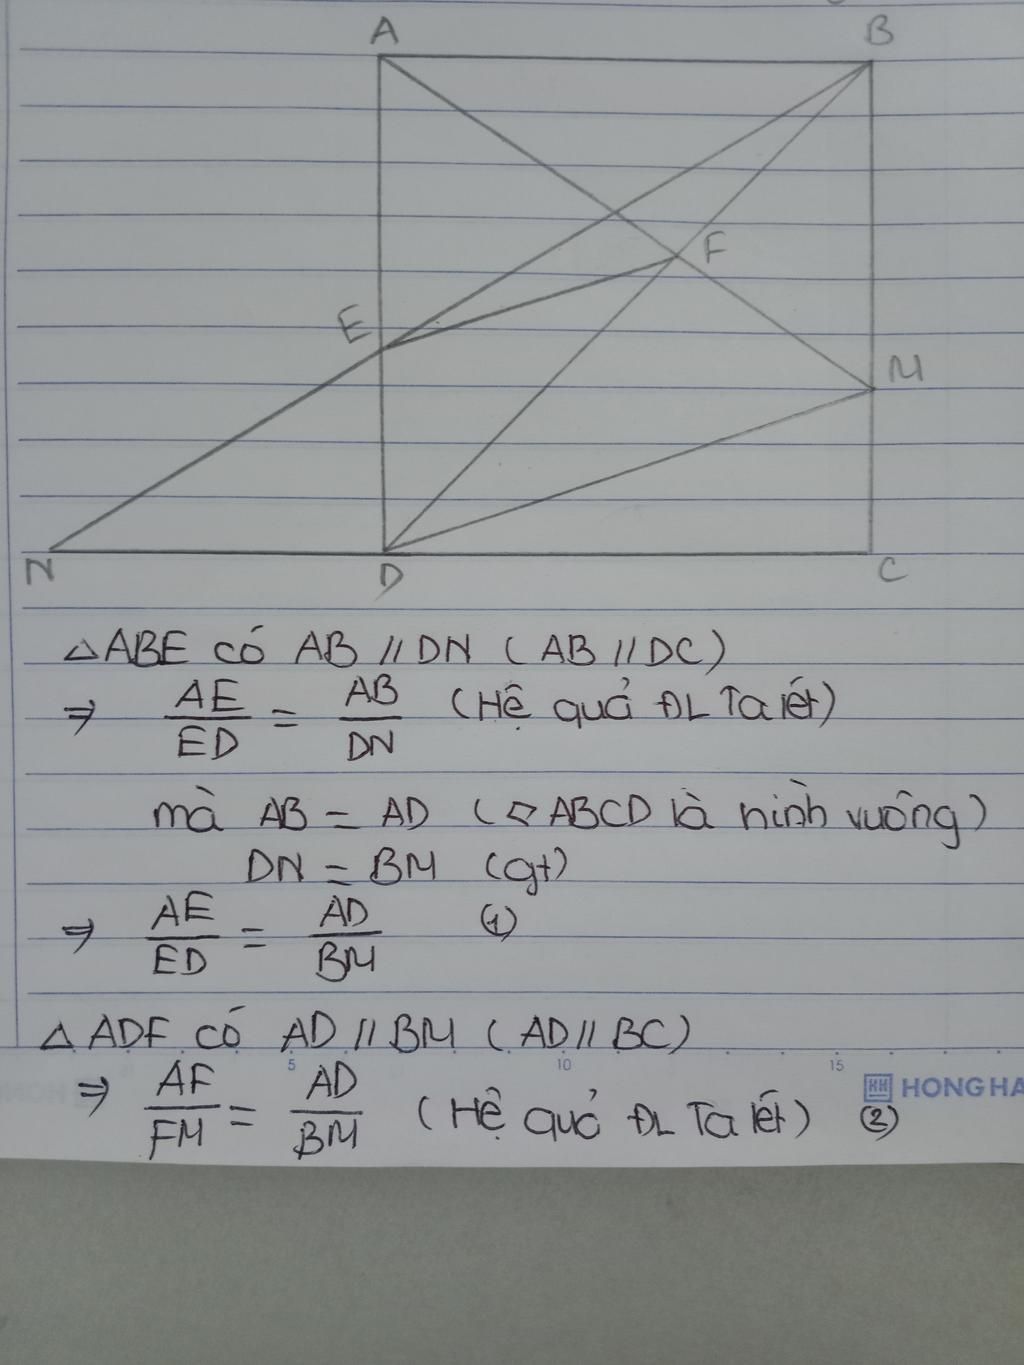 A B
F
E
M
N D C
△ABE có AB // DN (AB // DC)
⇒ AE/ED = AB/DN (Hệ quả ĐL Ta lét)
mà AB = AD (▱ABCD là hình vuông)
DN = BM (gt)
⇒ AE/ED = AD/BM (1)
△ADF có AD // BM (AD // BC)
5 10 15
⇒ AF/FM = AD/BM (Hệ quả ĐL Ta lét) (2)
HONG HA